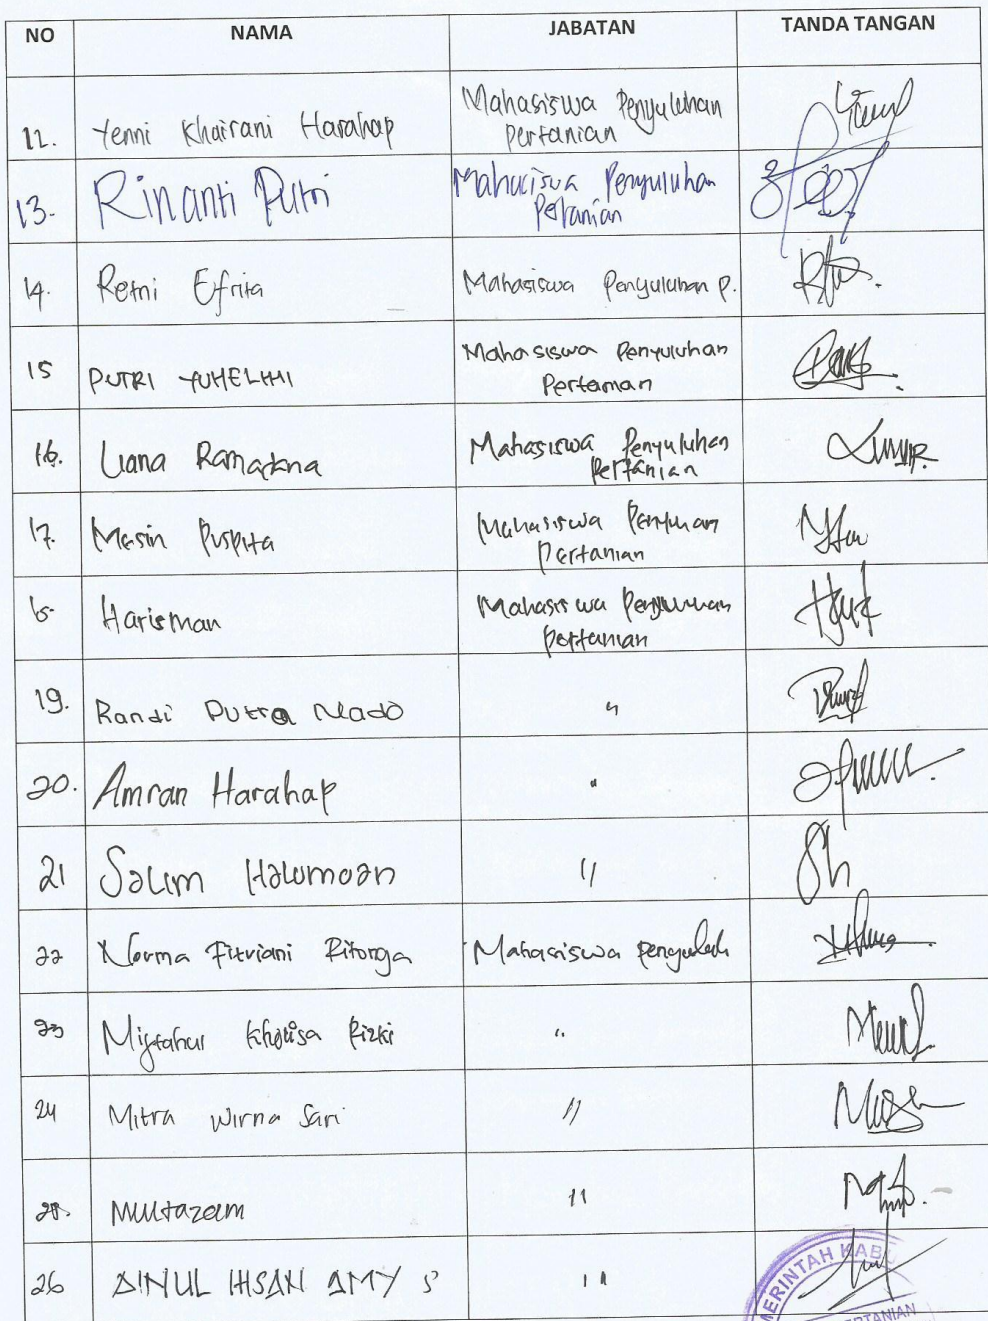 NO NAMA JABATAN TANDA TANGAN
12. Yenni Khairani Harahap Mahasiswa Penyuluhan
Pertanian
13. Rinanti Putri Mahasiswa Penyuluhan
Pertanian
14. Retni Efrita Mahasiswa Penyuluhan P.
15 PUTRI YUHELMI Mahasiswa Penyuluhan
Pertanian
16. Liana Ramadana Mahasiswa Penyuluhan
Pertanian
17. Mesin Puspita Mahasiswa
Pertanian
Harisman Mahasiswa Penyuluhan
Pertanian
19. Randi Putra Nado "
20. Amran Harahap "
21 Salim Halomoan "
22 Norma Fitriani Ritonga Mahasiswa
23 Miftahul Kholisa Rizki "
24 Mitra Wirna Sari "
25. Multazam "
26 AINUL IHSAN AMY S "
MERINTAH KABU
RTANIAN